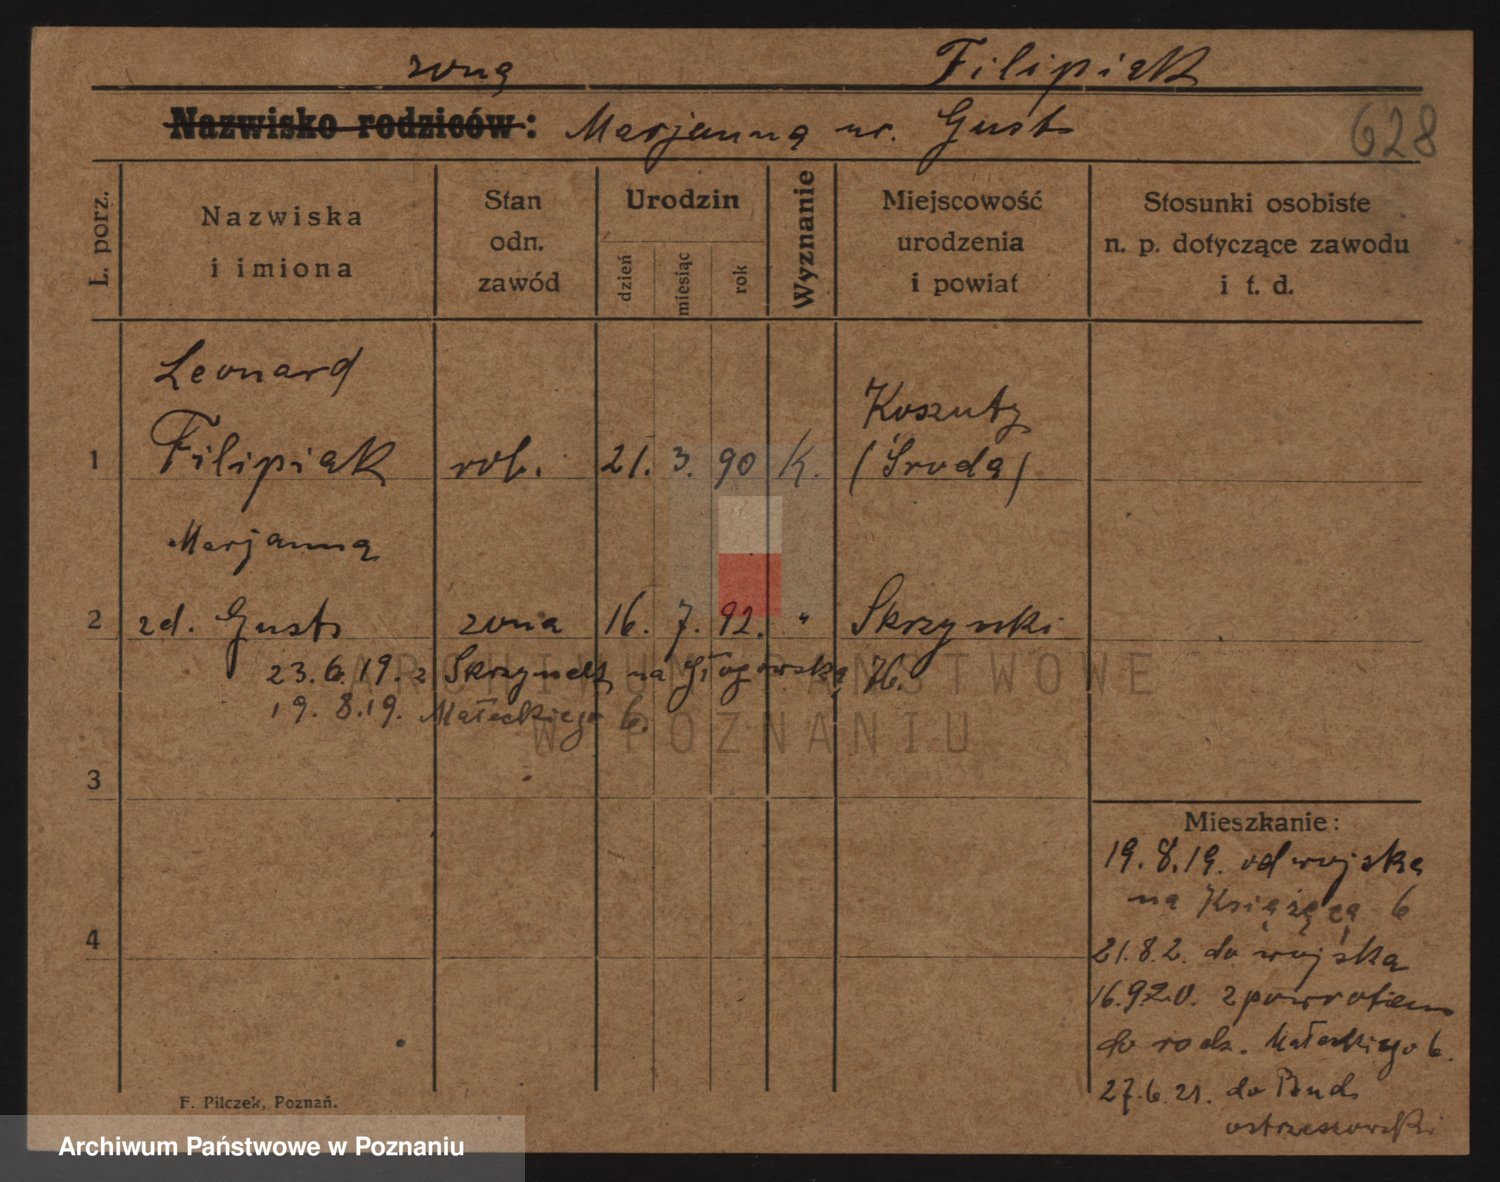 żona Filipiak
Nazwisko rodziców: Marjanna ur. Gust
628
L. porz.
Nazwiska i imiona
Stan odn. zawód
Urodzin
dzień
miesiąc
rok
Wyznanie
Miejscowość urodzenia i powiat
Stosunki osobiste n. p. dotyczące zawodu i t. d.
Leonard
Koszuty
1 Filipiak rob. 21. 3. 90 K. (Środa)
Marjanna
2 zd. Gust żona 16. 7. 92. " Skrzynki
23.6.19. z Skrzynek na Głogowską 76.
19. 8.19. Małeckiego 6.
3
4
Mieszkanie:
19.8.19. od wojska
na Książęcą 6
21.8.2. do wojska
16.9.20. z powrotem
do rodz. Małeckiego 6.
27.6.21. do
ostrzeszowski
F. Pilczek, Poznań.
ARCHIWUM PAŃSTWOWE
W POZNANIU
Archiwum Państwowe w Poznaniu